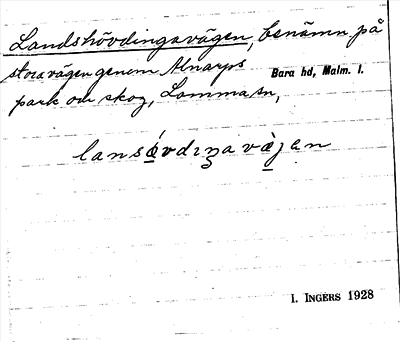 Landshövdingavägen, benämn på
stora vägen genom Alnarps
Bara hd, Malm. l.
park och skog, Lomma sn,
lansǿvdıŋa vὰ̠jen
I. INGERS 1928